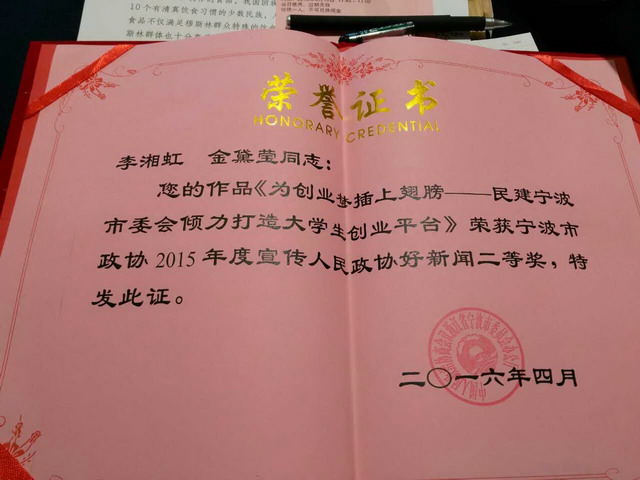 10个有清真饮食习惯的少数民族，
食品不仅满足穆斯林群众特殊的饮
斯林群体也十分
荣誉证书
HONORARY CREDENTIAL
李湘虹 金黛莹同志：
您的作品《为创业梦插上翅膀——民建宁波
市委会倾力打造大学生创业平台》荣获宁波市
政协2015年度宣传人民政协好新闻二等奖，特
发此证。
二〇一六年四月